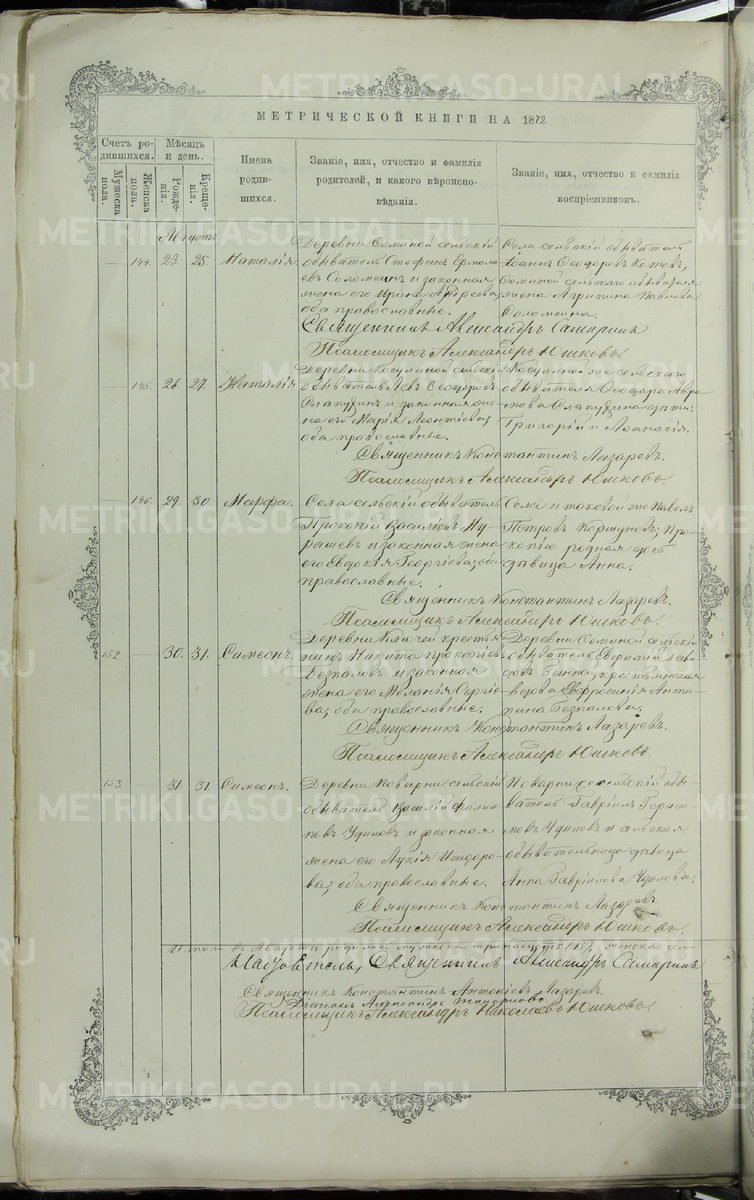 МЕТРИЧЕСКОЙ КНИГИ НА 1872
Счетъ родившихся.
Мужеска пола.
Женска пола.
Мѣсяцъ и день.
Рожденія.
Крещенія.
Имена родившихся.
Званіе, имя, отчество и фамилія родителей, и какого вѣроисповѣданія.
Званіе, имя, отчество и фамилія воспріемниковъ.
Августъ
144. 23. 25. Наталія
Деревни Сотиной сельскій
обыватель Стефанъ Ермола
евъ Соломеинъ и законная
жена его Ирина Андреева,
оба православные.
Села сельскій обыватель
Іоаннъ Ѳеодоровъ Котовъ,
Сотиной сельскаго обывателя
жена Агрипина Павлова
Соломеина.
Священникъ Александръ Самаринъ
Псаломщикъ Александръ Юшковъ.
145. 26. 27. Наталія
Деревни Косулиной сельскій
обыватель Левъ Ѳеодоровъ
Слѣпухинъ и законная же
на его Марія Леонтіева,
оба православные.
Косулиной же сельскаго
обывателя Ѳеодора Авра
мова Слѣпухина дѣти:
Григорій и Аѳанасія.
Священникъ Константинъ Лазаревъ.
Псаломщикъ Александръ Юшковъ.
146. 29. 30. Марфа.
Села сельскій обыватель
Прокопій Васильевъ
и законная жена
его Евдокія Георгіева, оба
православные.
Села и таковой же Павелъ
Петровъ Коршуновъ, Про-
копія родная дочь
дѣвица Анна.
Священникъ Константинъ Лазаревъ.
Псаломщикъ Александръ Юшковъ.
152. 30. 31. Симеонъ.
Деревни Ключей крестья
нинъ Никита Прокопіевъ
Безпаловъ и законная
жена его Меланія Сергіе-
ва, оба православные.
Деревни Сотиной сельскій
обыватель Евфимій
крестьянская
Евфросинія Анти-
пина Безпалова.
Священникъ Константинъ Лазаревъ.
Псаломщикъ Александръ Юшковъ.
153. 31. 31. Симеонъ.
Деревни Поварни сельскій
обыватель Василій Филип
повъ Удиловъ и законная
жена его Лукія Исидоро-
ва, оба православные.
сельскій обы-
ватель Гавріилъ Гераси-
мовъ Удиловъ и сельская
обывательница дѣвица
Анна Гавріилова Удилова.
Священникъ Константинъ Лазаревъ.
Псаломщикъ Александръ Юшковъ.
Итого въ Августѣ родилось мужеска тринадцать (13), женска
Священникъ Александръ Самаринъ
Священникъ Константинъ Антоніевъ Лазаревъ.
Діаконъ Александръ
Псаломщикъ Александръ Николаевъ Юшковъ.
METRIKI.GASO-URAL.RU